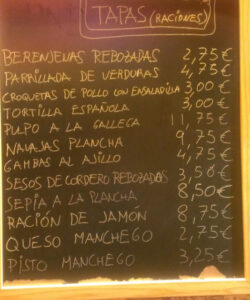 TAPAS (RACIONES)
BERENJENAS REBOZADAS 2,75€
PARRILLADA DE VERDURAS 4,75€
CROQUETAS DE POLLO CON ENSALADILLA 3,00€
TORTILLA ESPAÑOLA 3,00€
PULPO A LA GALLEGA 11,75€
NAVAJAS PLANCHA 9,75€
GAMBAS AL AJILLO 4,75€
SESOS DE CORDERO REBOZADAS 3,50€
SEPIA A LA PLANCHA 8,50€
RACIÓN DE JAMON 8,75€
QUESO MANCHEGO 2,75€
PISTO MANCHEGO 3,25€